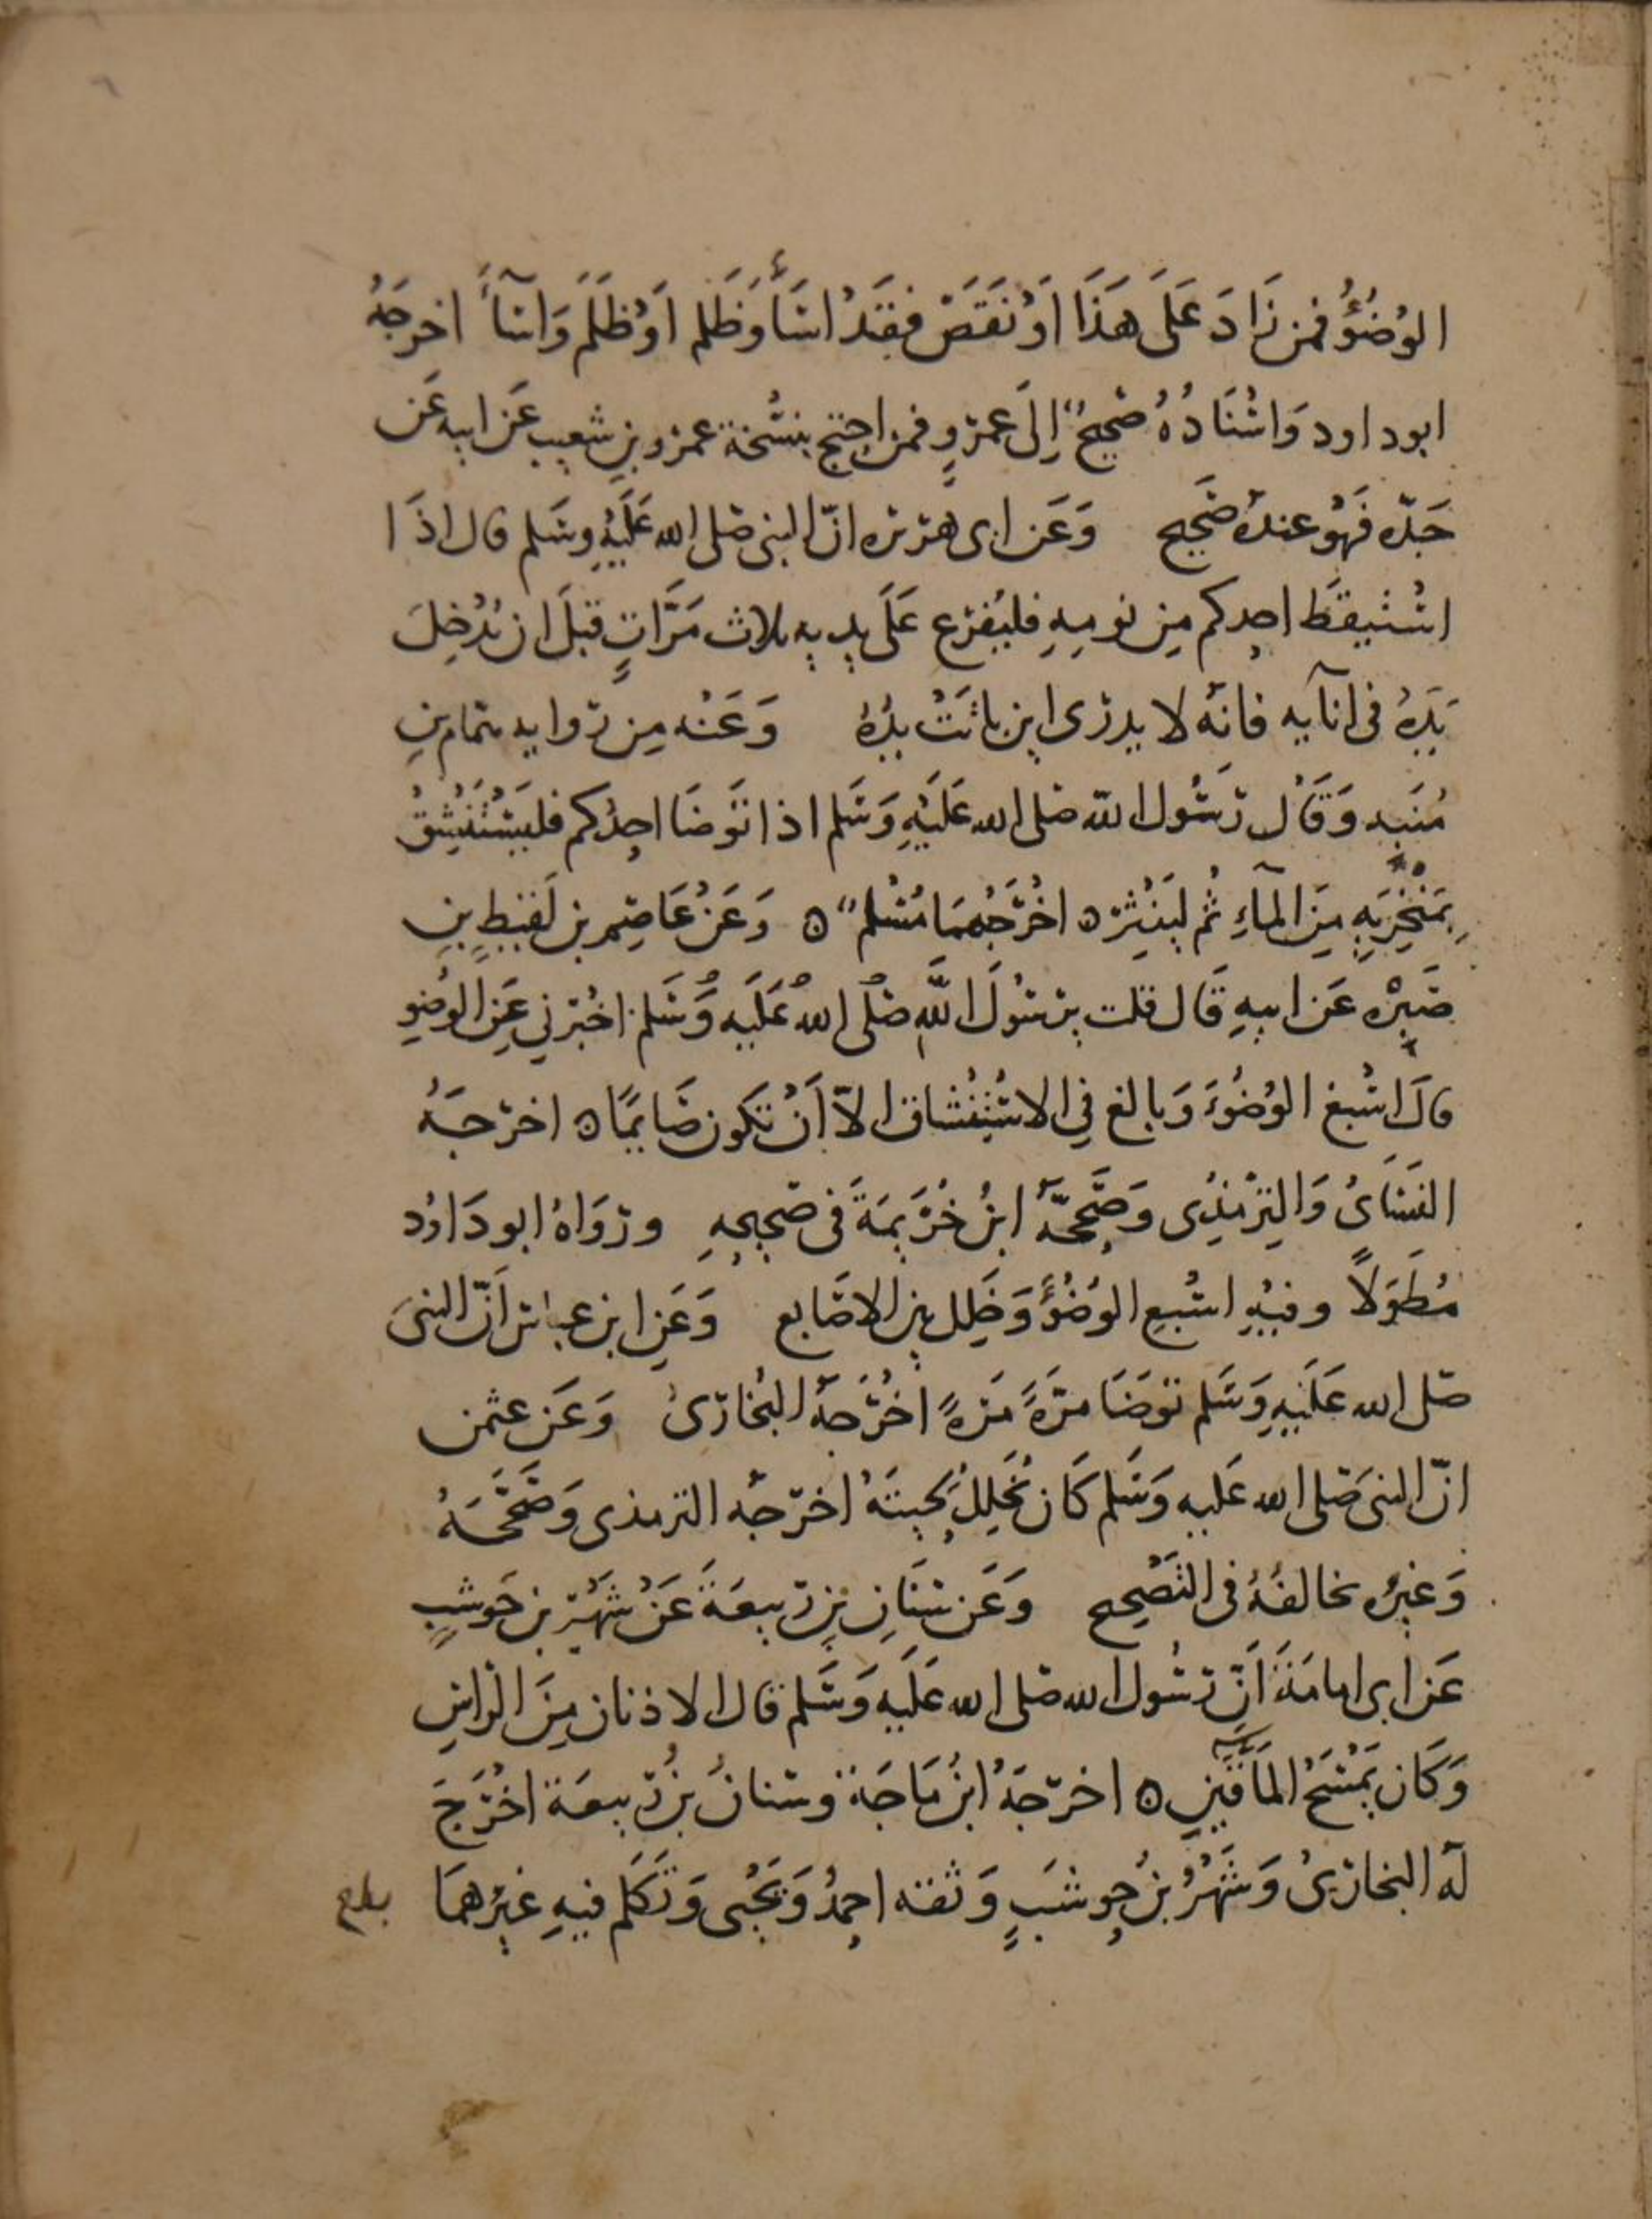 الوُضُؤُ فمن زَادَ عَلَى هَذَا اَوْ نَقَصَ فقَدْ اسَأَ وَظَلم اَوْ ظَلَمَ وَاسَآَٔ اخرجَهُ
ابوداود وَاسْنَادُهُ صَحِيحٌ اِلَى عمْروٍ فمن احتج بنسْخة عمْرو بنِ شعيب عَن ابيه عَن
جَدّه فَهْوَ عندهُ صَحِيح وَعَن ابى هرَيرَه انّ النبى صَلى الله عَلَيْهِ وسَلم قال اذَا
اسْتيقظَ احدكم مِن نومِهِ فليُفرِغ عَلَى يديه ثلاث مَرَّاتٍ قبلَ ان يُدْخِلَ
يَدِهُ فى انآيه فانّه لا يدرى اين بَاتَتْ يدُهُ وَعَنْه مِن رَوايه همّام بنِ
مُنَبه وَقَال رَسُول الله صَلى الله عَلَيْهِ وَسَلم اذا توَضَا احدُكم فليَسْتَنْشِقُ
بِمَنْخِرَيهِ مِنَ المآءِ ثُم ليَنْثِره اخْرَجَهُمَا مُسْلم وَعَنْ عَاصِم بن لَقيطِ بنِ
صَبِرْه عَن ابيهِ قَال قلت يرَسُولَ اللهِ صَلْى اللهُ عَلَيه وَسَلم اخْبرني عَنِ الوُضوِ
قالَ اسْبغ الوُضُوءَ وَبالغ فِي الاسْتِنْشاق الاّ اَنْ تكون صَايمًا اخرَجَهُ
النسَاىُ وَالتِرْمذِى وَصَحَّحهُ ابنُ خُزَيمَةَ فى صَحيحِهِ ورَوَاهُ ابودَاوُد
مُطَوَلاً وفيْهِ اسْبغ الوُضُؤَ وَخَلل بين الاصَابع وَعَنِ ابن عباس اَنّ النبىَ
صَلى الله عَلَيْهِ وَسَلم توَضَا مرَّةَ مَرةً اخْرَجَهُ البُخارىُ وَعَن عثمن
انّ النبىَ صَلى الله عَليه وَسَلم كَان يُخَلِلُ لِحيتَهُ اخرَجَه الترمذى وَصَحَّحَهُ
وَغيرُه يخالفُهُ فى التَصْحيح وَعَن سنَانِ بنِ رَبيعَةَ عَنْ شَهْر بن حَوشبٍ
عَن ابى امامَةَ اَنّ رَسُول الله صَلى الله عَلَيه وَسَلم قال الاذنان مِنَ الرَاسِ
وَكَان يَمْسَحُ المَأقَينِ اخرَجَهُ ابنُ مَاجَة وسنانُ بنُ رَبيعَة اخْرَجَ
لَه البخارىُ وَشَهْرُ بنُ حوشَبٍ وَثقه احمدُ وَيَحْيى وَتَكَلم فيهِ غيرُهمَا بلغ